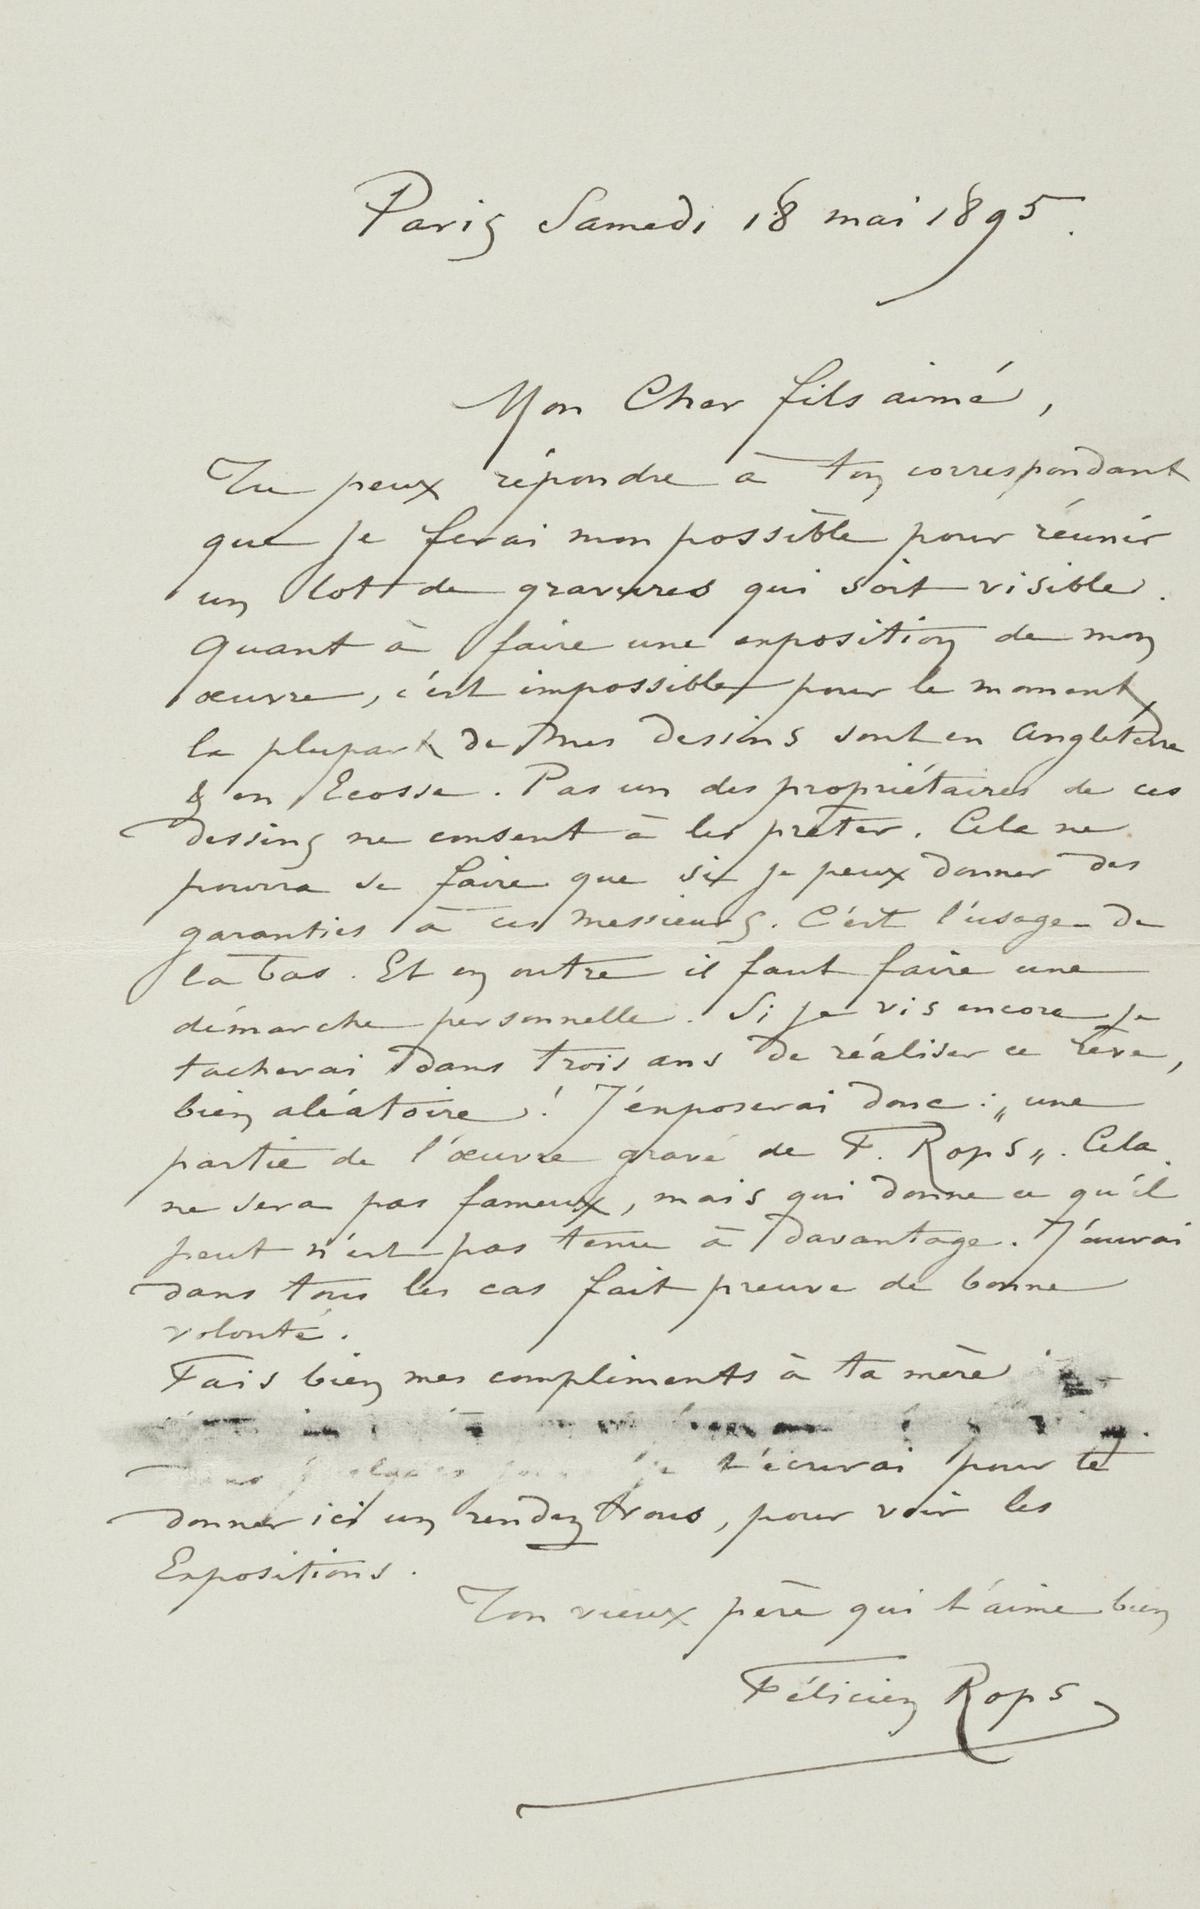 Paris Samedi 18 mai 1895.
Mon Cher fils aimé,
Tu peux répondre à ton correspondant
que je ferai mon possible pour réunir
un lot de gravures qui soit visible.
Quant à faire une exposition de mon
œuvre, c'est impossible pour le moment,
la plupart de mes dessins sont en Angleterre
& en Ecosse. Pas un des propriétaires de ces
dessins ne consent à les prêter. Cela ne
pourra se faire que si je peux donner des
garanties à ces messieurs. C'est l'usage de
la bas. Et en outre il faut faire une
démarche personnelle. Si je vis encore je
tacherai dans trois ans de réaliser ce rêve,
bien aléatoire! J'exposerai donc : „une
partie de l'œuvre gravé de F. Rops„. Cela
ne sera pas fameux, mais qui donne ce qu'il
peut n'est pas tenu à davantage. J'aurai
dans tous les cas fait preuve de bonne
volonté.
Fais bien mes compliments à ta mère
je t'écrirai pour te
donner ici un rendez vous, pour voir les
Expositions.
Ton vieux père qui t'aime bien
Félicien Rops